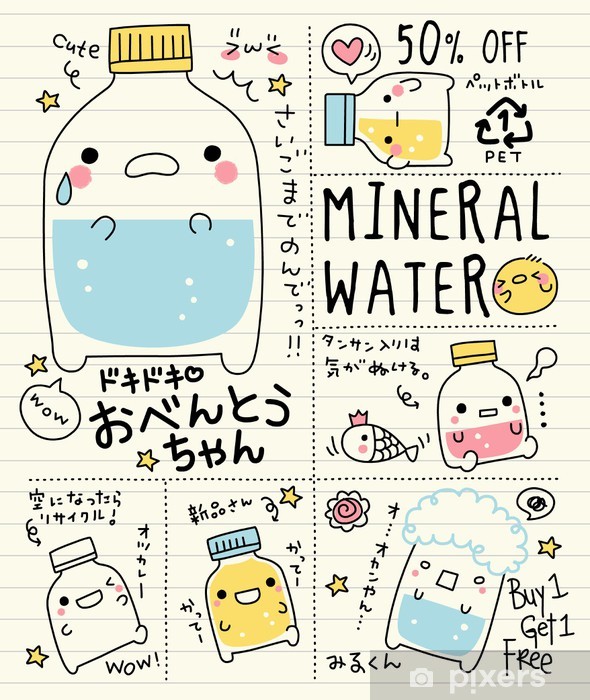 cute
>"w"<
さいごまでのんでっっ!!
wow
ドキドキ♡
おべんとう
ちゃん
50% OFF
ペットボトル
1
PET
MINERAL
WATER
タンサン入りは
気がぬける。
空になったら
リサイクル!
オツカレー
WOW!
新品さん
かってー
かってー
オ...オカンやん...
みるくん
Buy 1
Get 1
Free
pixers